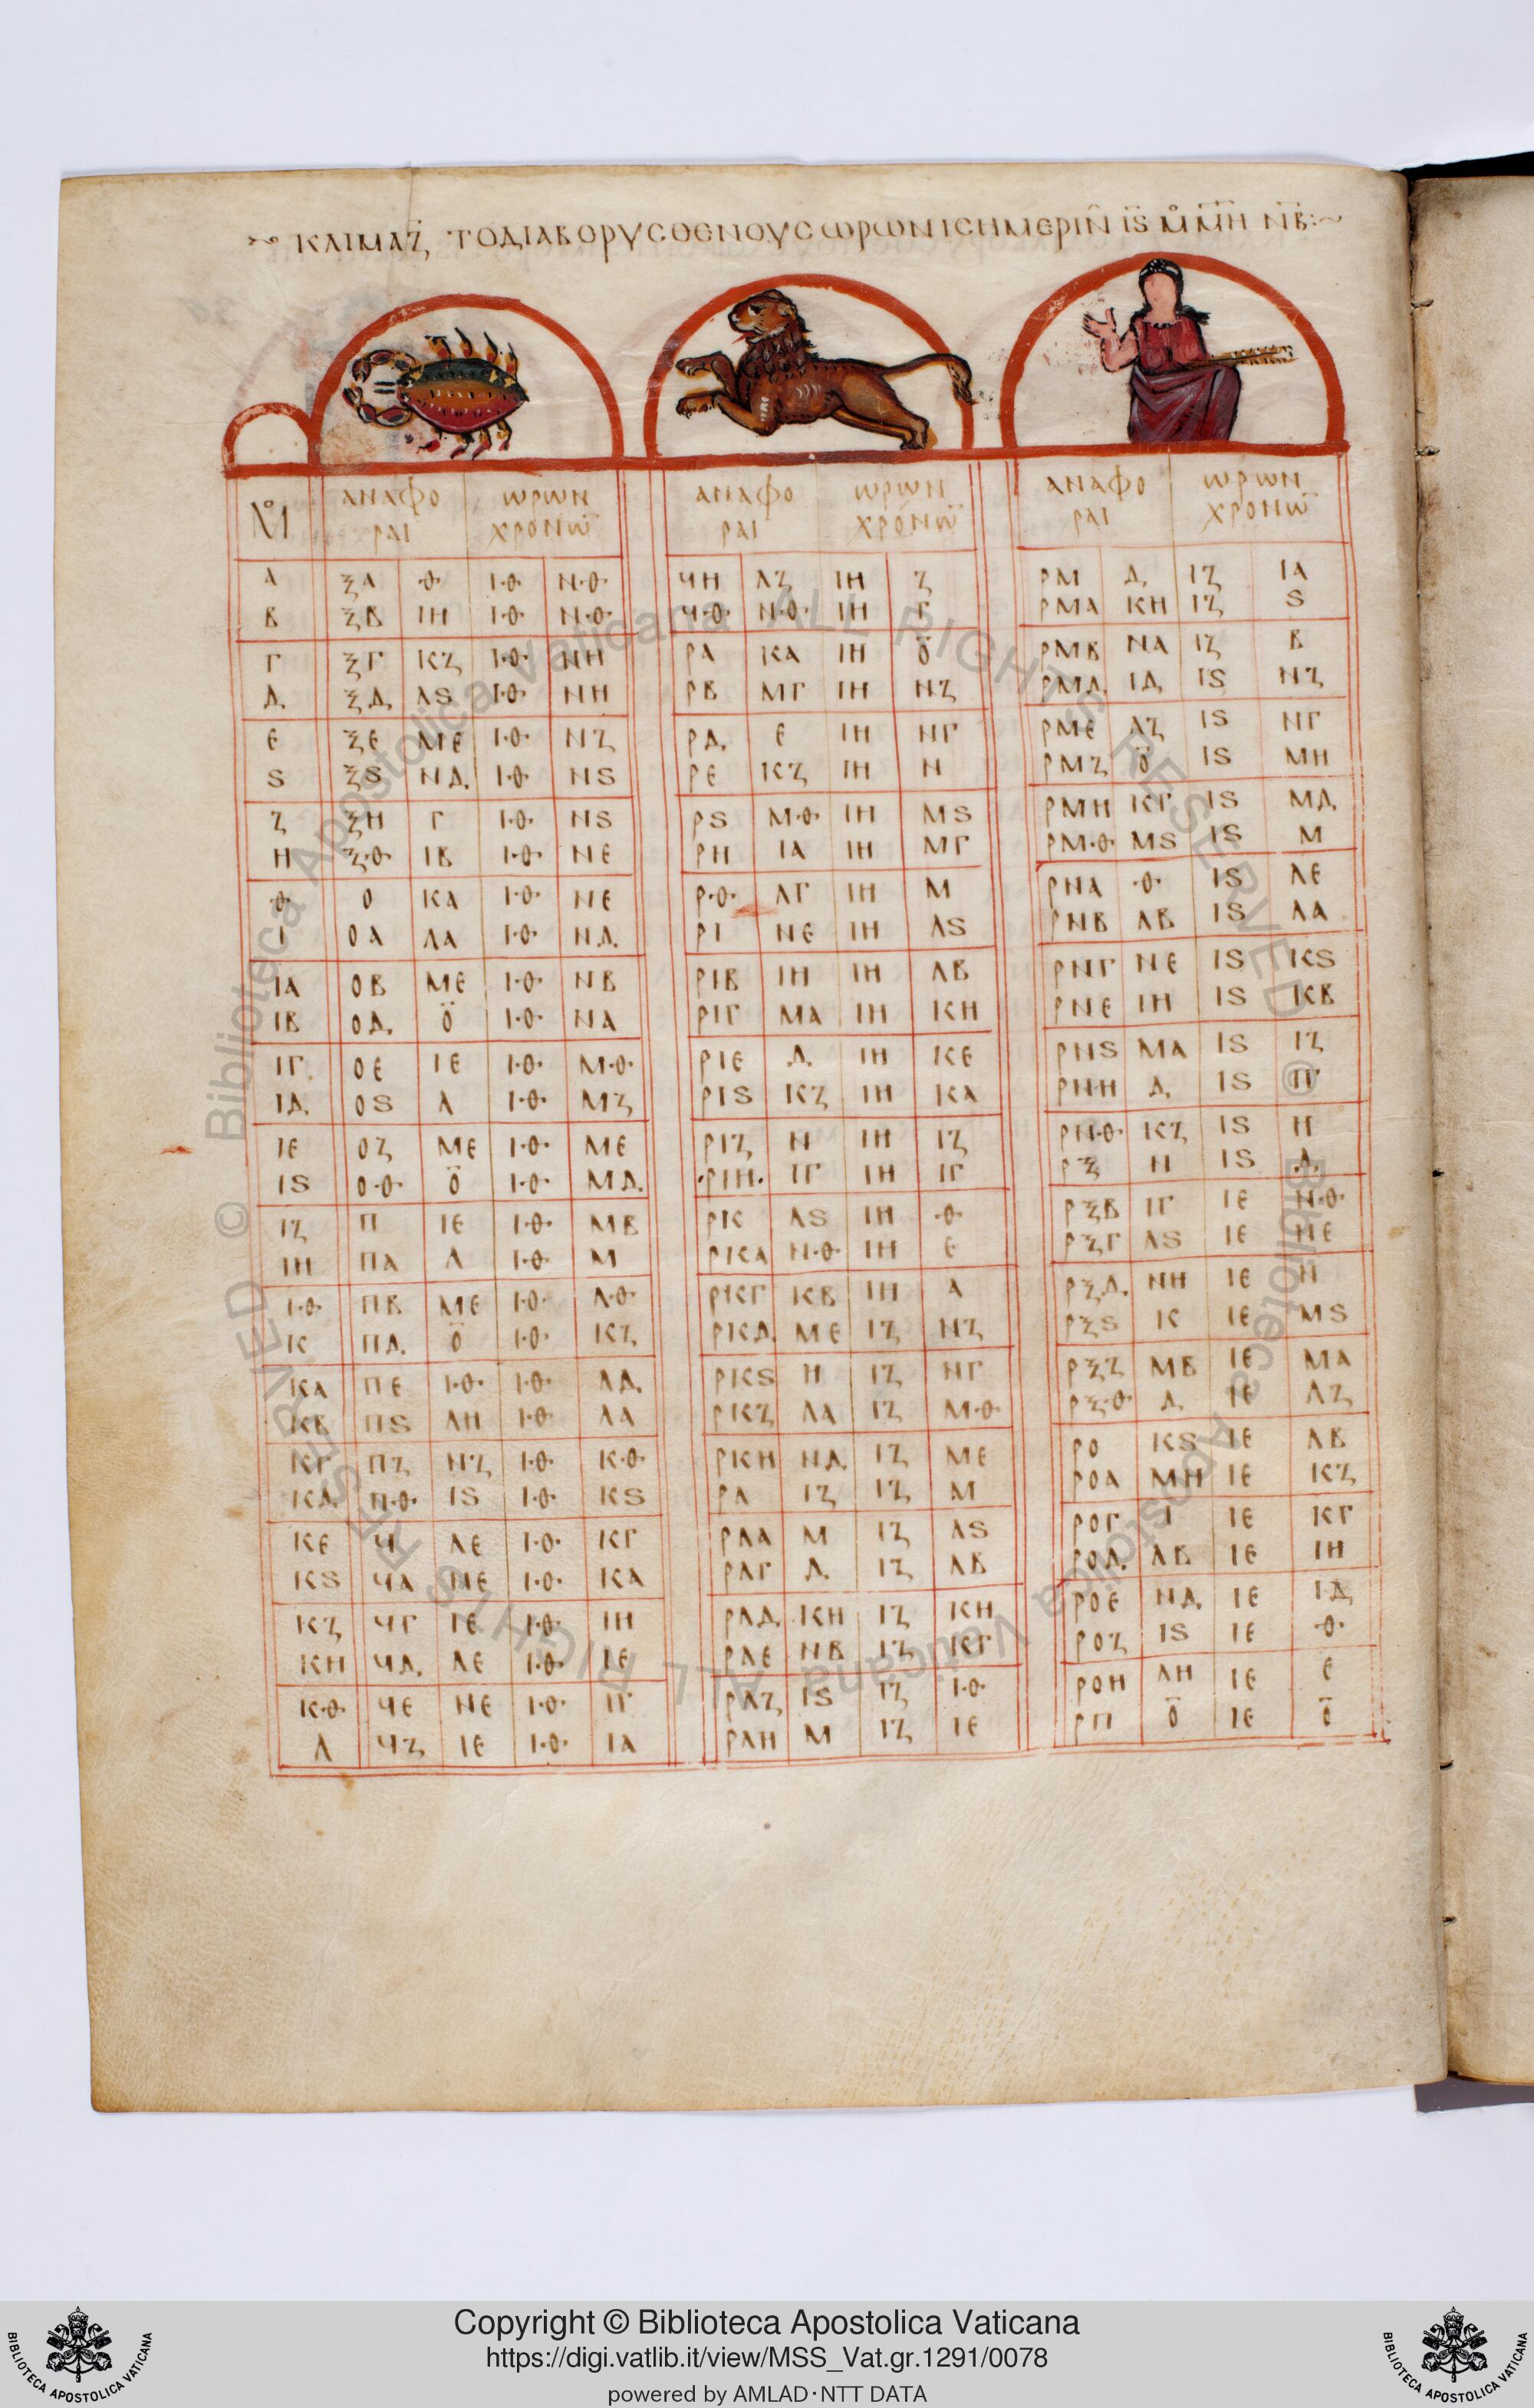 ΚΛΙΜΑ Ζ ΤΟ ΔΙΑ ΒΟΡΥСΘΕΝΟΥС ωΡωΝ ΙСΗΜΕΡΙΝ ΙϚ Μ° ΜΗ ΝΒ :~
ΑΝΑΦΟ ωΡωΝ ΑΝΑΦΟ ωΡωΝ ΑΝΑΦΟ ωΡωΝ
ΡΑΙ ΧΡΟΝω ΡΑΙ ΧΡΟΝω ΡΑΙ ΧΡΟΝω
Α ΞΑ Θ ΙΘ ΝΘ ϞΗ ΛΖ ΙΗ Ζ ΡΜ Δ ΙΖ ΙΑ
Β ΞΒ ΙΗ ΙΘ ΝΘ ϞΘ ΝΘ ΙΗ Γ ΡΜΑ ΚΗ ΙΖ Ϛ
Γ ΞΓ ΚΖ ΙΘ ΝΗ ΡΑ ΚΑ ΙΗ Ο ΡΜΒ ΝΑ ΙΖ Β
Δ ΞΔ ΛϚ ΙΘ ΝΗ ΡΒ ΜΓ ΙΗ ΝΖ ΡΜΔ ΙΔ ΙϚ ΝΖ
Ε ΞΕ ΜΕ ΙΘ ΝΖ ΡΔ Ε ΙΗ ΝΓ ΡΜΕ ΛΖ ΙϚ ΝΓ
Ϛ ΞϚ ΝΔ ΙΘ ΝϚ ΡΕ ΚΖ ΙΗ Ν ΡΜΖ Ο ΙϚ ΜΗ
Ζ ΞΗ Γ ΙΘ ΝϚ ΡϚ ΜΘ ΙΗ ΜϚ ΡΜΗ ΚΓ ΙϚ ΜΔ
Η ΞΘ ΙΒ ΙΘ ΝΕ ΡΗ ΙΑ ΙΗ ΜΓ ΡΜΘ ΜϚ ΙϚ Μ
Θ Ο ΚΑ ΙΘ ΝΕ ΡΘ ΛΓ ΙΗ Μ ΡΝΑ Θ ΙϚ ΛΕ
Ι ΟΑ ΛΑ ΙΘ ΝΔ ΡΙ ΝΕ ΙΗ ΛϚ ΡΝΒ ΛΒ ΙϚ ΛΑ
ΙΑ ΟΒ ΜΕ ΙΘ ΝΒ ΡΙΒ ΙΗ ΙΗ ΛΒ ΡΝΓ ΝΕ ΙϚ ΚϚ
ΙΒ ΟΔ Ο ΙΘ ΝΑ ΡΙΓ ΜΑ ΙΗ ΚΗ ΡΝΕ ΙΗ ΙϚ ΚΒ
ΙΓ ΟΕ ΙΕ ΙΘ ΜΘ ΡΙΕ Δ ΙΗ ΚΕ ΡΝϚ ΜΑ ΙϚ ΙΖ
ΙΔ ΟϚ Λ ΙΘ ΜΖ ΡΙϚ ΚΖ ΙΗ ΚΑ ΡΝΗ Δ ΙϚ ΙΓ
ΙΕ ΟΖ ΜΕ ΙΘ ΜΕ ΡΙΖ Ν ΙΗ ΙΖ ΡΝΘ ΚΖ ΙϚ Η
ΙϚ ΟΘ Ο ΙΘ ΜΔ ΡΙΗ ΙΓ ΙΗ ΙΓ ΡΞ Ν ΙϚ Δ
ΙΖ Π ΙΕ ΙΘ ΜΒ ΡΚ ΛϚ ΙΗ Θ ΡΞΒ ΙΓ ΙΕ ΝΘ
ΙΗ ΠΑ Λ ΙΘ Μ ΡΚΑ ΝΘ ΙΗ Ε ΡΞΓ ΛϚ ΙΕ ΝΕ
ΙΘ ΠΒ ΜΕ ΙΘ ΛΘ ΡΚΓ ΚΒ ΙΗ Α ΡΞΔ ΝΗ ΙΕ Ν
Κ ΠΔ Ο ΙΘ ΚΖ ΡΚΔ ΜΕ ΙΖ ΝΖ ΡΞϚ Κ ΙΕ ΜϚ
ΚΑ ΠΕ ΙΘ ΙΘ ΛΔ ΡΚϚ Η ΙΖ ΝΓ ΡΞΖ ΜΒ ΙΕ ΜΑ
ΚΒ ΠϚ ΛΗ ΙΘ ΛΑ ΡΚΖ ΛΑ ΙΖ ΜΘ ΡΞΘ Δ ΙΕ ΛΖ
ΚΓ ΠΖ ΝΖ ΙΘ ΚΘ ΡΚΗ ΝΔ ΙΖ ΜΕ ΡΟ ΚϚ ΙΕ ΛΒ
ΚΔ ΠΘ ΙϚ ΙΘ ΚϚ ΡΛ ΙΖ ΙΖ Μ ΡΟΑ ΜΗ ΙΕ ΚΖ
ΚΕ Ϟ ΛΕ ΙΘ ΚΓ ΡΛΑ Μ ΙΖ ΛϚ ΡΟΓ Ι ΙΕ ΚΓ
ΚϚ ϞΑ ΝΕ ΙΘ ΚΑ ΡΛΓ Δ ΙΖ ΛΒ ΡΟΔ ΛΒ ΙΕ ΙΗ
ΚΖ ϞΓ ΙΕ ΙΘ ΙΗ ΡΛΔ ΚΗ ΙΖ ΚΗ ΡΟΕ ΝΔ ΙΕ ΙΔ
ΚΗ ϞΔ ΛΕ ΙΘ ΙΕ ΡΛΕ ΝΒ ΙΖ ΚΓ ΡΟΖ ΙϚ ΙΕ Θ
ΚΘ ϞΕ ΝΕ ΙΘ ΙΓ ΡΛΖ ΙϚ ΙΖ ΙΘ ΡΟΗ ΛΗ ΙΕ Ε
Λ ϞΖ ΙΕ ΙΘ ΙΑ ΡΛΗ Μ ΙΖ ΙΕ ΡΠ Ο ΙΕ Ο
© Biblioteca Apostolica Vaticana ALL RIGHTS RESERVED © Biblioteca Apostolica Vaticana ALL RIGHTS RESERVED
Copyright © Biblioteca Apostolica Vaticana
https://digi.vatlib.it/view/MSS_Vat.gr.1291/0078
powered by AMLAD·NTT DATA
BIBLIOTECA APOSTOLICA VATICANA
BIBLIOTECA APOSTOLICA VATICANA